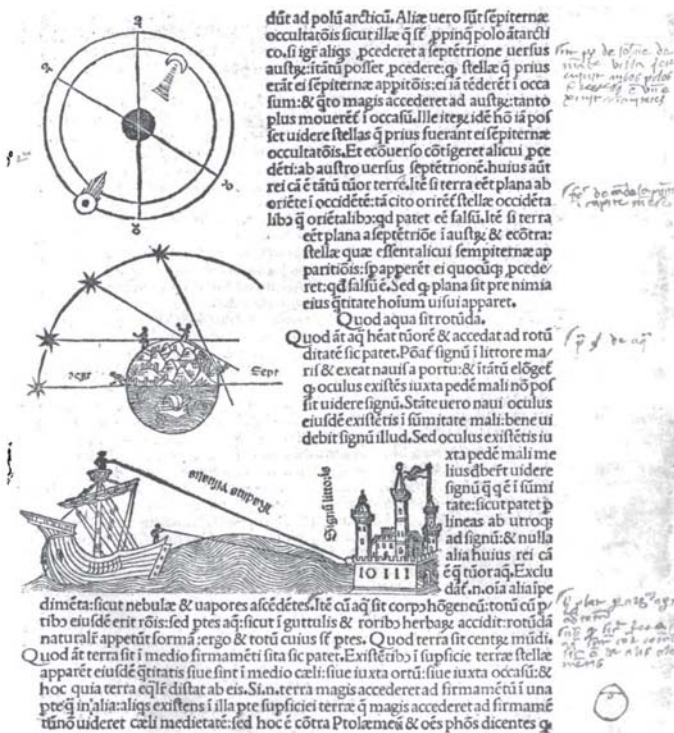 dūt ad polū arcticū. Aliæ uero sūt sēpiternæ
occultatōis sicut illæ q̄ sē ꝓpinq̄ polo ātarcti
co. si igr̄ aliq̄s ꝓcederet a septētrione uersus
austꝝ: itātū posset ꝓcedere: ꝙ stellæ q̄ prius
erāt ei sēpiternæ appitōis: ei iā tēderēt ī occa
sum: & q̄to magis accederet ad austꝝ: tanto
plus mouerēt̄ ī occasū. Ille iteꝝ idē hō iā pos
set uidere stellas q̄ prius fuerant ei sēpiternæ
occultatōis. Et ecōuerso cōtīgeret alicui ꝓce
dēti: ab austro uersus septētrionē. huius aūt
rei cā ē tātū tūor terrē. Itē si terra eēt plana ab
oriēte ī occidētē: tā cito orirēt̄ stellæ occidēta
libꝫ q̄ oriētalibꝫ: qd patet eē falsū. Itē si terra
eēt plana a septētriōe ī austꝝ & ecōtra:
stellæ quæ essent alicui sempiternæ ap
paritiōis: sp apperēt ei quocūqꝫ ꝓcede
ret: qd falsū ē. Sed ꝙ plana sit pre nimia
eius q̄titate hoīum uisui apparet.
Quod aqua sit rotūda.
Quod āt aq̄ hēat tūorē & accedat ad rotū
ditatē sic patet. Pōat̄ signū ī littore ma/
ris & exeat nauis a portu: & ītātū elōget̄
ꝙ oculus existēs iuxta pedē mali nō pos
sit uidere signū. Stāte uero naui oculus
eiusdē existētis ī sūmitate mali: bene ui
debit signū illud. Sed oculus existētis iu
xta pedē mali me
lius dberet uidere
signū q̄ q̄ ē ī sūmi
tate: sicut patet p̄
lineas ab utroqꝫ
ad signū: & nulla
alia huius rei cā
ē q̄ tūor aq̄. Exclu
dāt̄. n. oīa alia īpe
dimēta: sicut nebulæ & uapores ascēdētes. Itē cū aq̄ sit corpꝰ hōgeneū: totū cū p̄
tibꝫ eiusdē erit rōis: sed ptes aq̄: sicut ī guttulis & roribꝫ herbaꝝ accidit: rotūdā
naturalr̄ appetūt formā: ergo & totū cuius sē ptes. Quod terra sit centꝝ mūdi.
Quod āt terra sit ī medio firmamēti sita sic patet. Existētibꝫ ī supficie terræ stellæ
apparēt eiusdē q̄titatis siue sint ī medio cæli: siue iuxta ortū: siue iuxta occasū: &
hoc quia terra eqlr̄ distat ab eis. Si. n. terra magis accederet ad firmamētū ī una
pte q̄ in alia: aliq̄s existens ī illa pte supficiei terræ q̄ magis accederet ad firmamē
tū nō uideret cæli medietatē: sed hoc ē cōtra Ptolæmeū & oēs phōs dicentes ꝙ
Sept
Radius visualis
Signū littoris
IO III